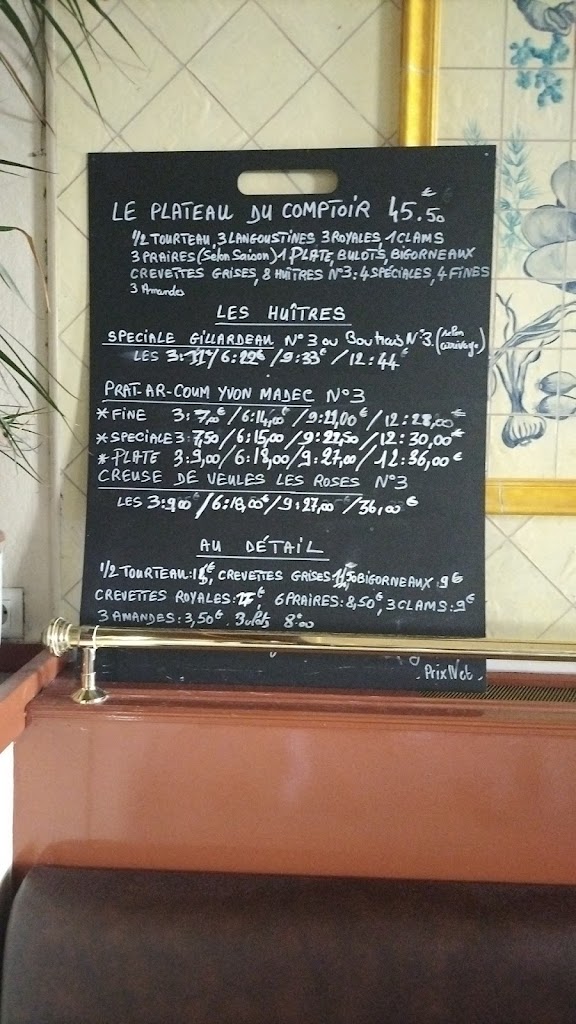 LE PLATEAU DU COMPTOIR 45.50€
1/2 TOURTEAU, 3 LANGOUSTINES 3 ROYALES, 1 CLAMS
3 PRAIRES (Selon Saison) 1 PLATE, BULOTS, BIGORNEAUX
CREVETTES GRISES, 8 HUÎTRES N°3: 4 SPÉCIALES, 4 FINES
3 Amandes
LES HUÎTRES
SPECIALE GILLARDEAU N°3 ou Boutrais N°3. (selon arrivage)
LES 3:11€/6:22€/9:33€/12:44€
PRAT-AR-COUM YVON MADEC N°3
*FINE 3:7,00€/6:14,00€/9:21,00€/12:28,00€
*SPECIALE 3:7,50/6:15,00/9:22,50€/12:30,00€
*PLATE 3:9,00/6:18,00/9:27,00€/12:36,00€
CREUSE DE VEULES LES ROSES N°3
LES 3:9,00€/6:18,00€/9:27,00€/36,00€
AU DÉTAIL
1/2 TOURTEAU: CREVETTES GRISES: BIGORNEAUX:9€
CREVETTES ROYALES: 6 PRAIRES:8,50€, 3 CLAMS:9€
3 AMANDES:3,50€. 8€00
-Prix Net-